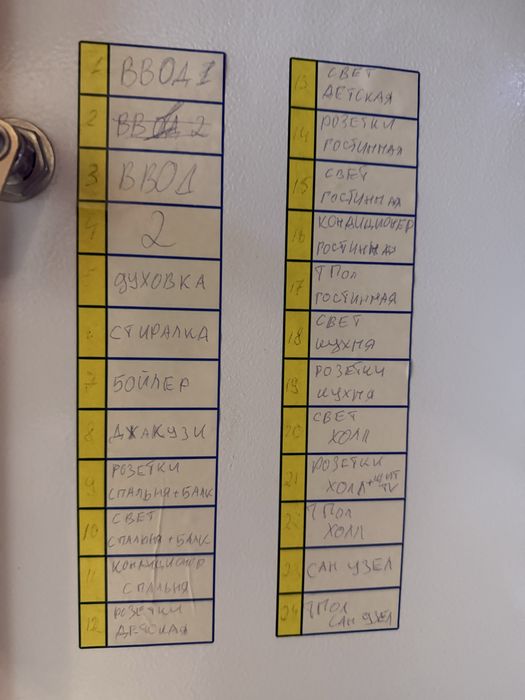 1 ВВОД 1
2 ВВОД 2
3 ВВОД
4 2
5 ДУХОВКА
6 СТИРАЛКА
7 БОЙЛЕР
8 ДЖАКУЗИ
9 РОЗЕТКИ
СПАЛЬНЯ+БАЛК
10 СВЕТ
СПАЛЬНЯ+БАЛК
11 КОНДИЦИОНЕР
СПАЛЬНЯ
12 РОЗЕТКИ
ДЕТСКАЯ
13 СВЕТ
ДЕТСКАЯ
14 РОЗЕТКИ
ГОСТИННАЯ
15 СВЕТ
ГОСТИННАЯ
16 КОНДИЦИОНЕР
ГОСТИННАЯ
17 Т ПОЛ
ГОСТИННАЯ
18 СВЕТ
КУХНЯ
19 РОЗЕТКИ
КУХНЯ
20 СВЕТ
ХОЛЛ
21 РОЗЕТКИ
ХОЛЛ+ЩИТ
TV
22 Т ПОЛ
ХОЛЛ
23 САН УЗЕЛ
24 Т ПОЛ
САН УЗЕЛ